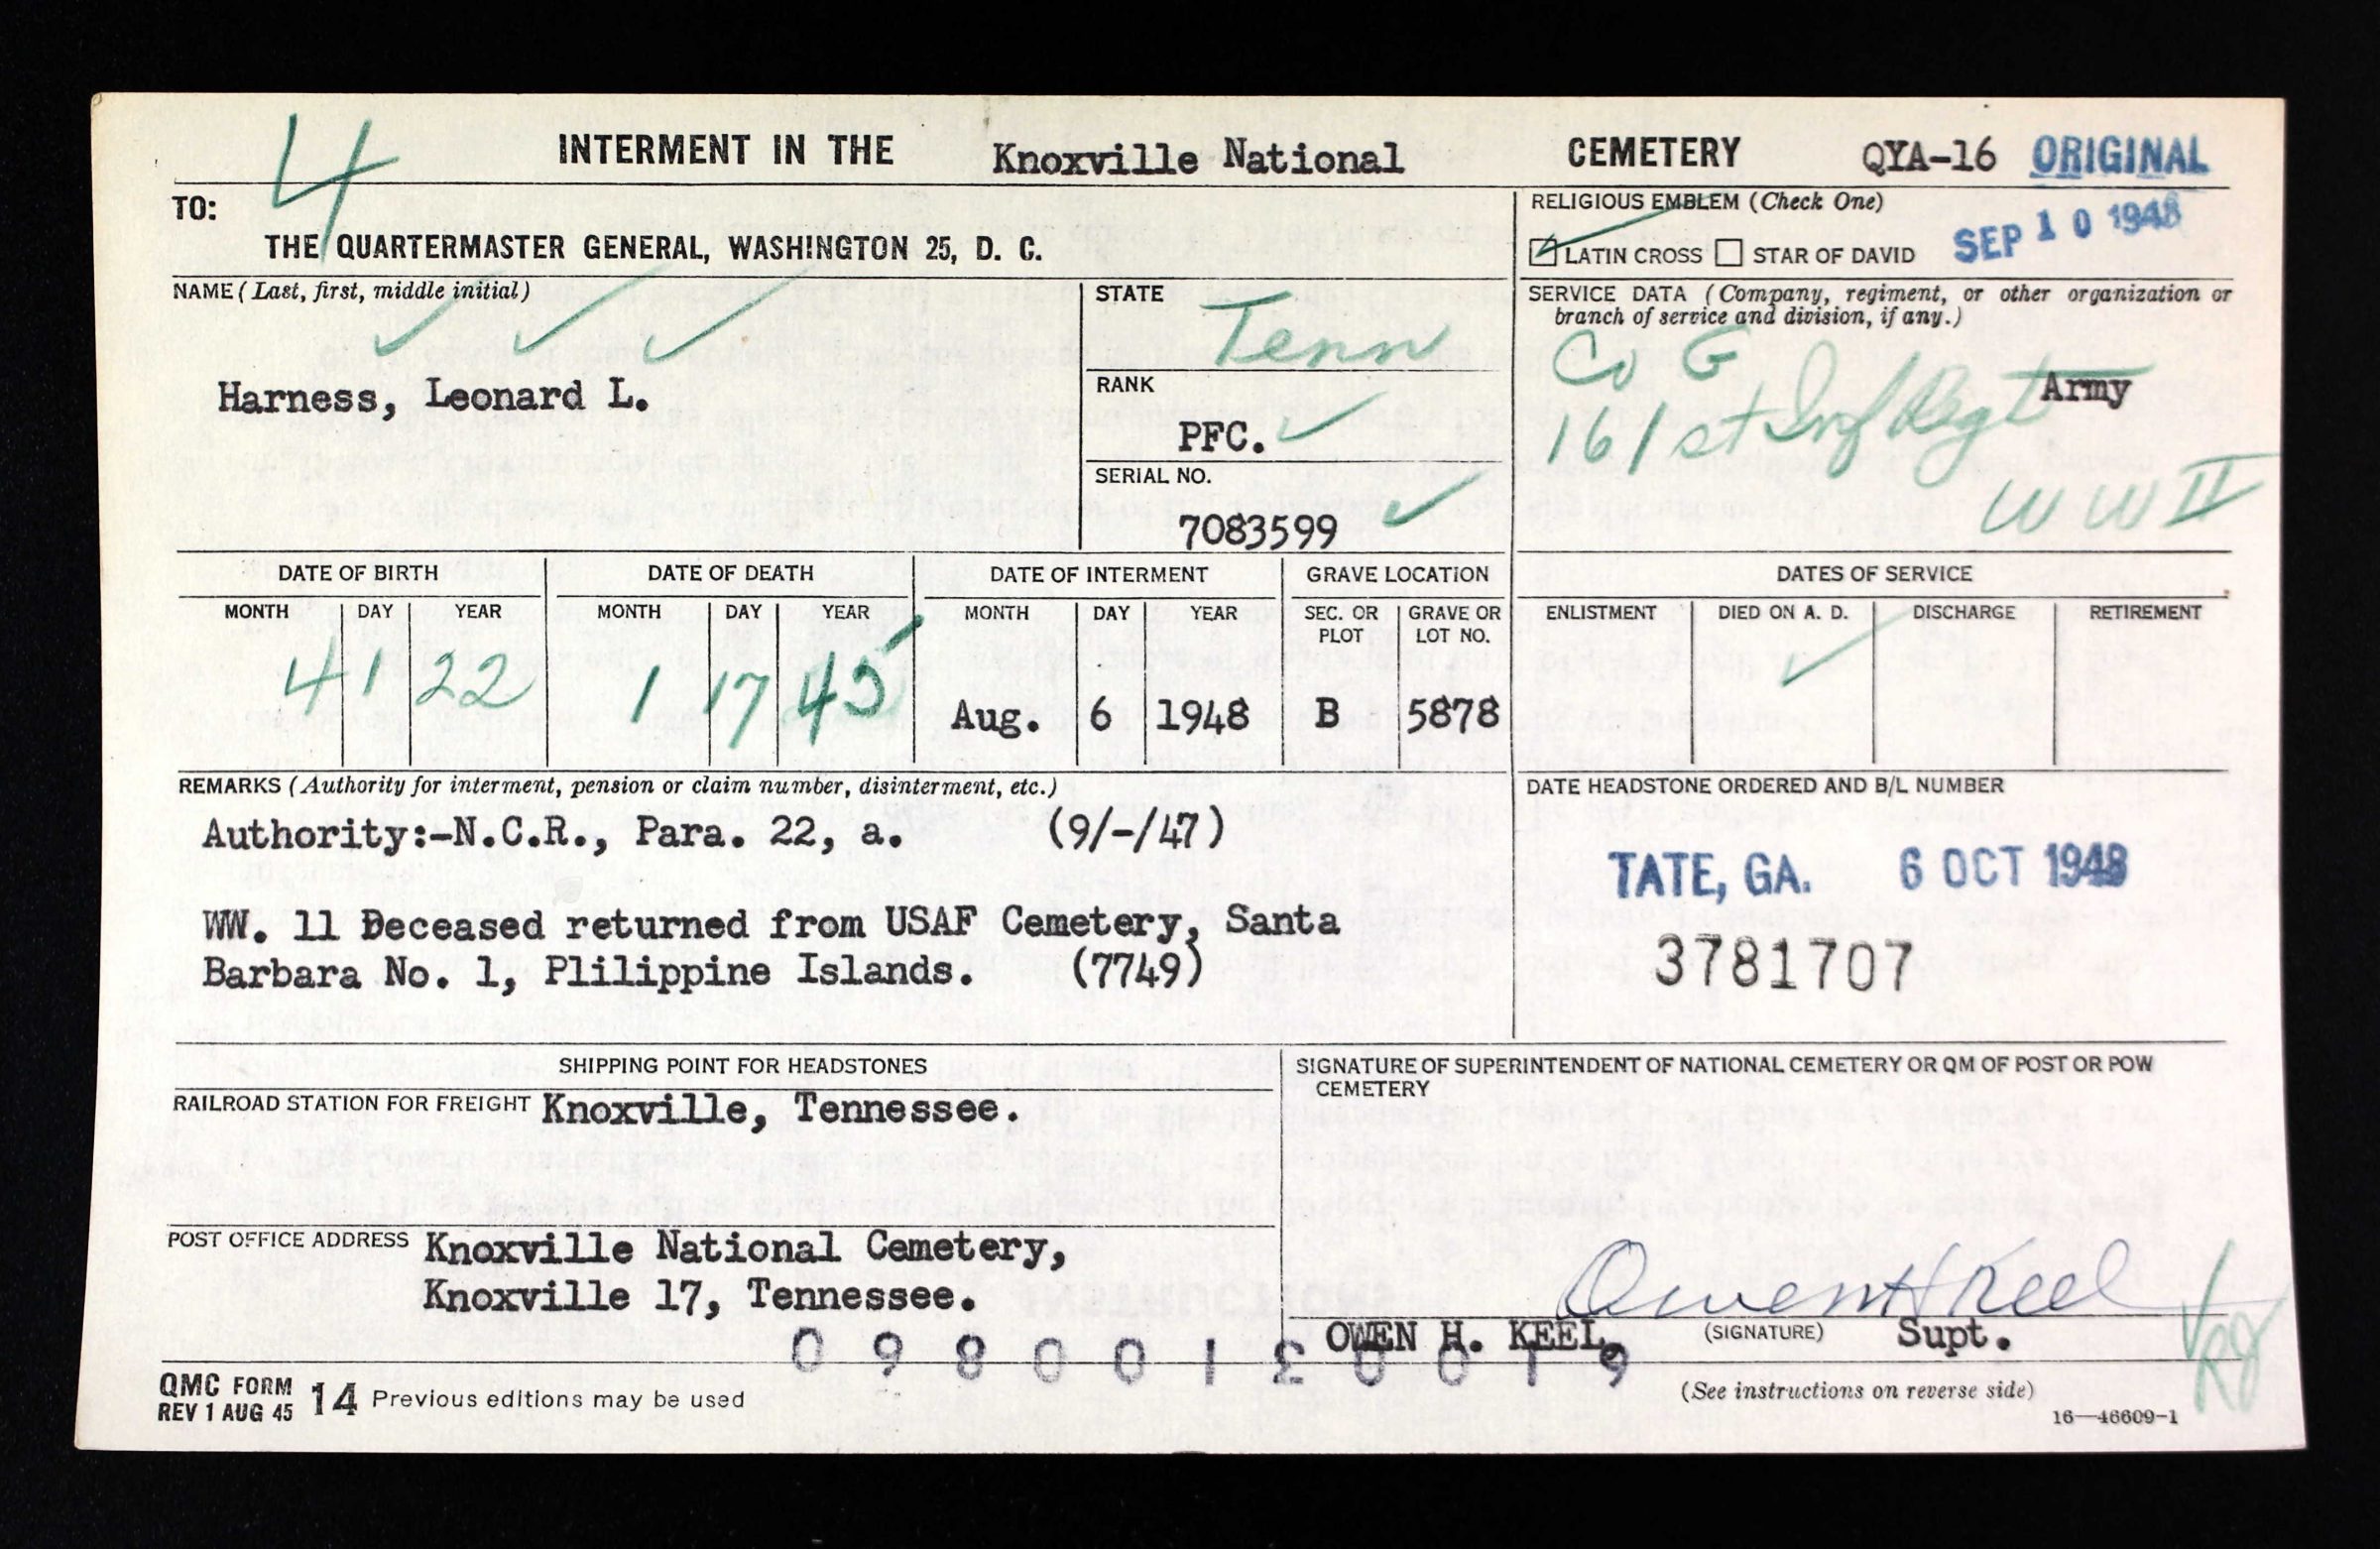 4
INTERMENT IN THE Knoxville National CEMETERY QYA-16 ORIGINAL
TO:
THE QUARTERMASTER GENERAL, WASHINGTON 25, D. C.
RELIGIOUS EMBLEM (Check One)
LATIN CROSS STAR OF DAVID
SEP 10 1948
NAME (Last, first, middle initial)
Harness, Leonard L.
STATE
Tenn
RANK
PFC.
SERIAL NO.
7083599
SERVICE DATA (Company, regiment, or other organization or
branch of service and division, if any.)
Co G
Army
161st Inf Regt
WW II
DATE OF BIRTH DATE OF DEATH DATE OF INTERMENT GRAVE LOCATION DATES OF SERVICE
MONTH DAY YEAR MONTH DAY YEAR MONTH DAY YEAR SEC. OR PLOT GRAVE OR LOT NO. ENLISTMENT DIED ON A. D. DISCHARGE RETIREMENT
4 1 22 1 17 45 Aug. 6 1948 B 5878
REMARKS (Authority for interment, pension or claim number, disinterment, etc.)
Authority:-N.C.R., Para. 22, a. (9/-/47)
WW. 11 Deceased returned from USAF Cemetery, Santa
Barbara No. 1, Plilippine Islands. (7749)
DATE HEADSTONE ORDERED AND B/L NUMBER
TATE, GA. 6 OCT 1948
3781707
SHIPPING POINT FOR HEADSTONES
RAILROAD STATION FOR FREIGHT Knoxville, Tennessee.
POST OFFICE ADDRESS Knoxville National Cemetery,
Knoxville 17, Tennessee.
SIGNATURE OF SUPERINTENDENT OF NATIONAL CEMETERY OR QM OF POST OR POW
CEMETERY
Owen H Keel
OWEN H. KEEL, (SIGNATURE) Supt.
(See instructions on reverse side)
QMC FORM 14 Previous editions may be used
REV 1 AUG 45
16—46609-1